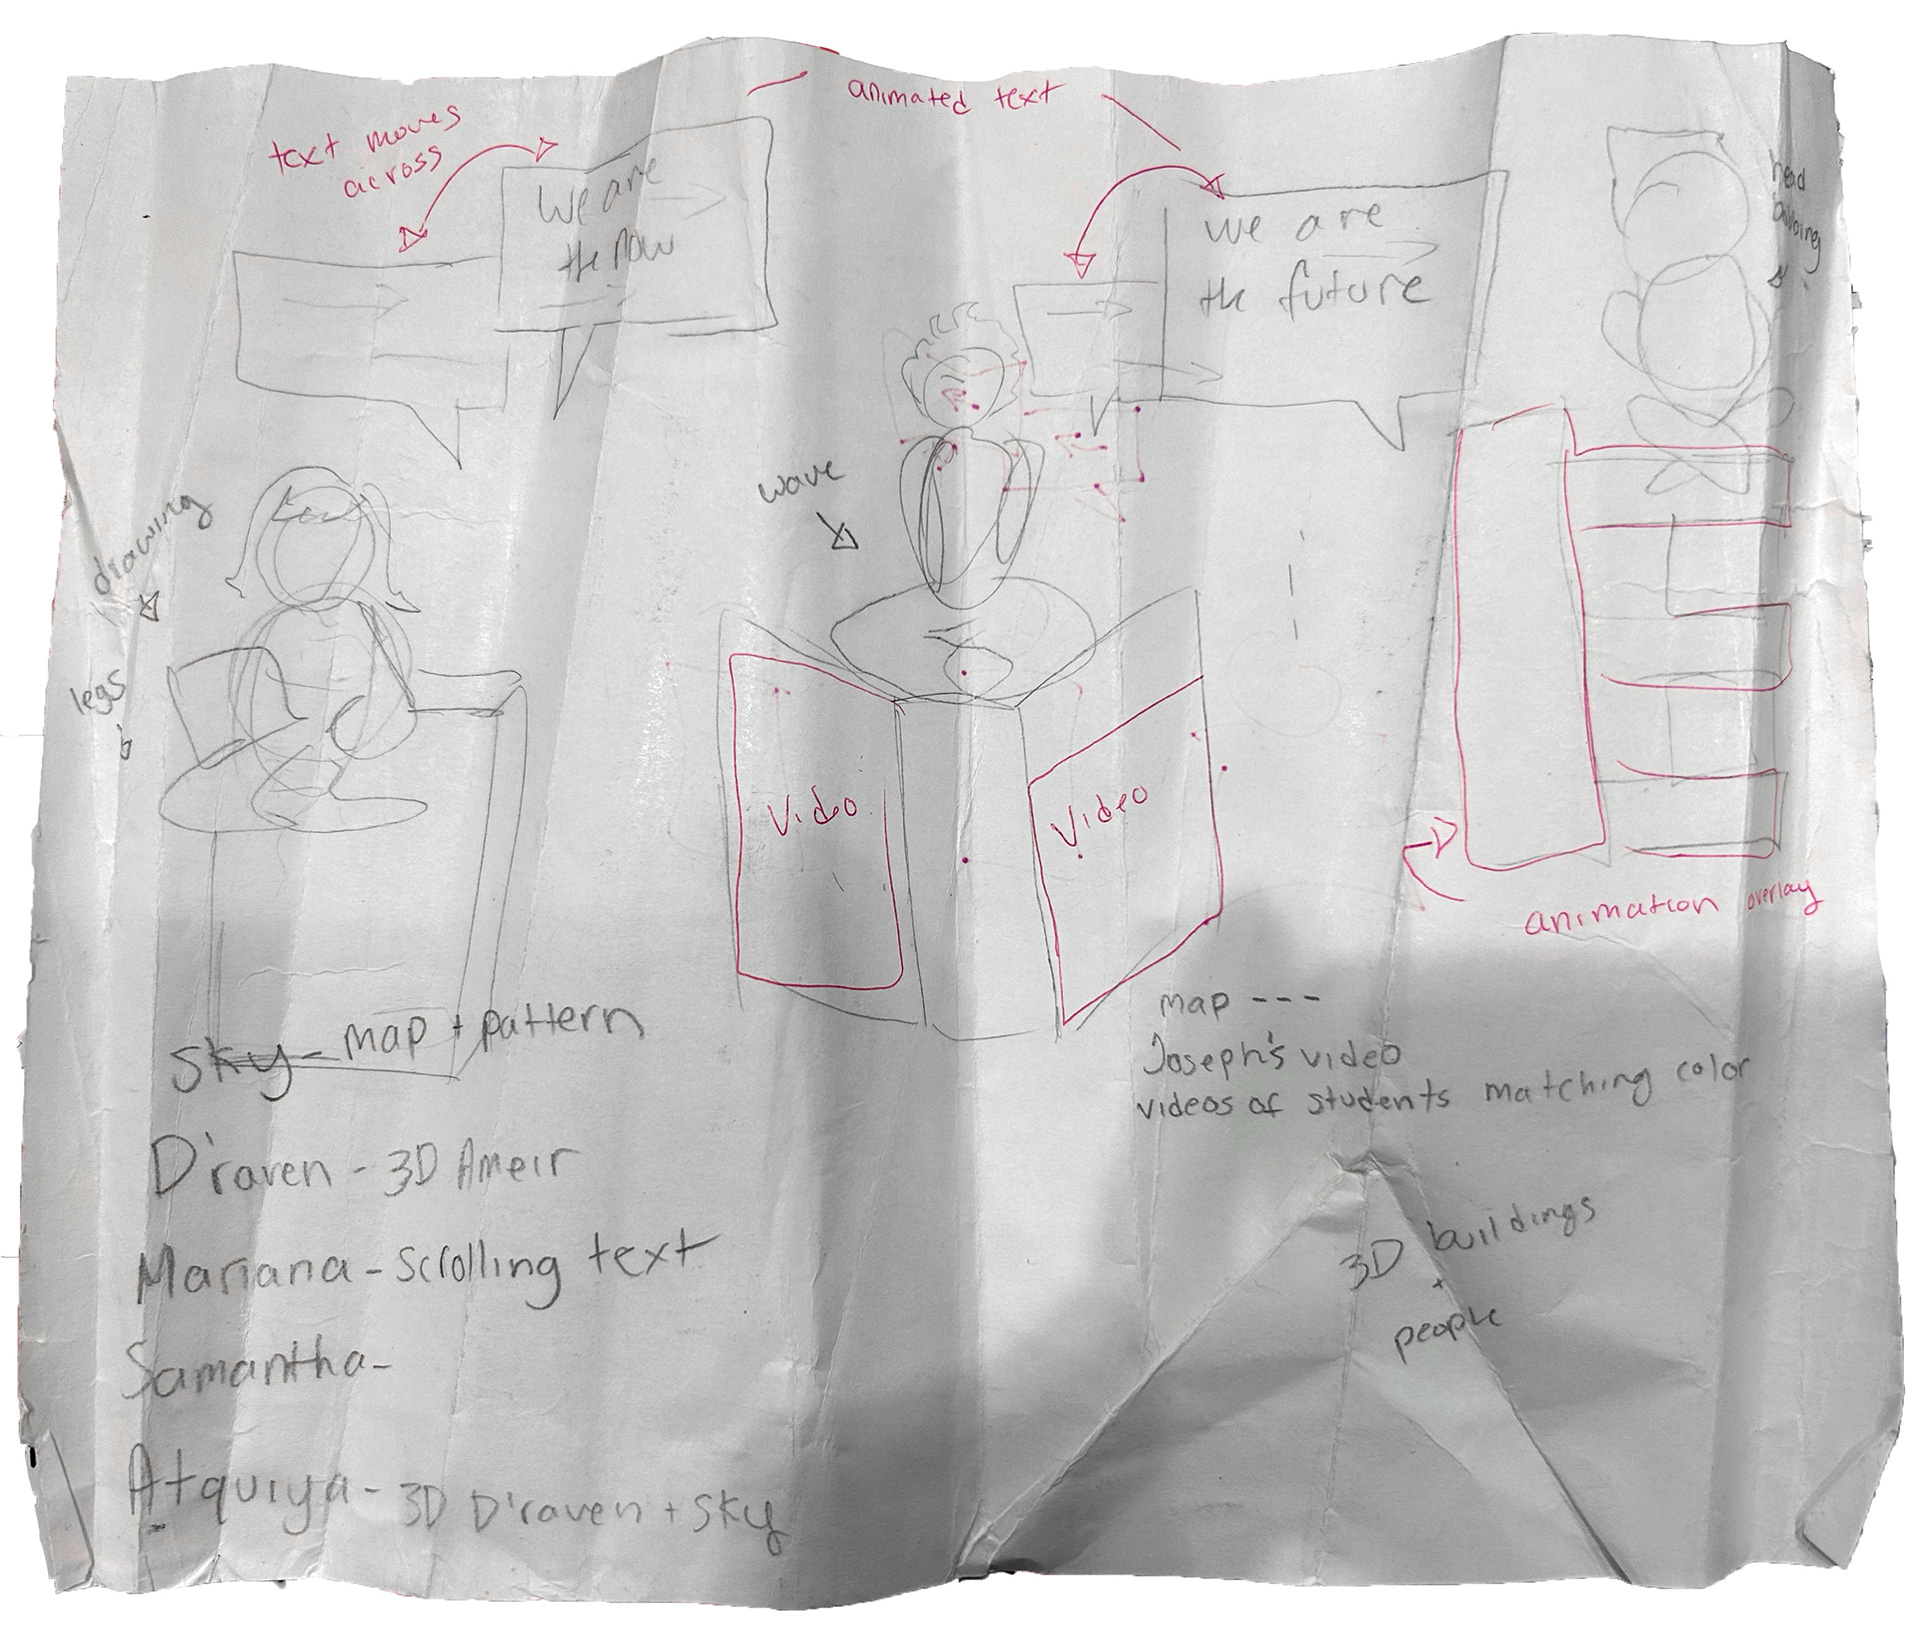 animated text
text moves
across
We are
the now
we are
the future
head
wave
drawing
legs
Video
Video
animation overlay
map ---
Joseph's video
videos of students matching color
Sky - map + pattern
D'raven - 3D Ameir
Mariana - scrolling text
Samantha-
Atquiya - 3D D'raven + Sky
3D buildings
+
people